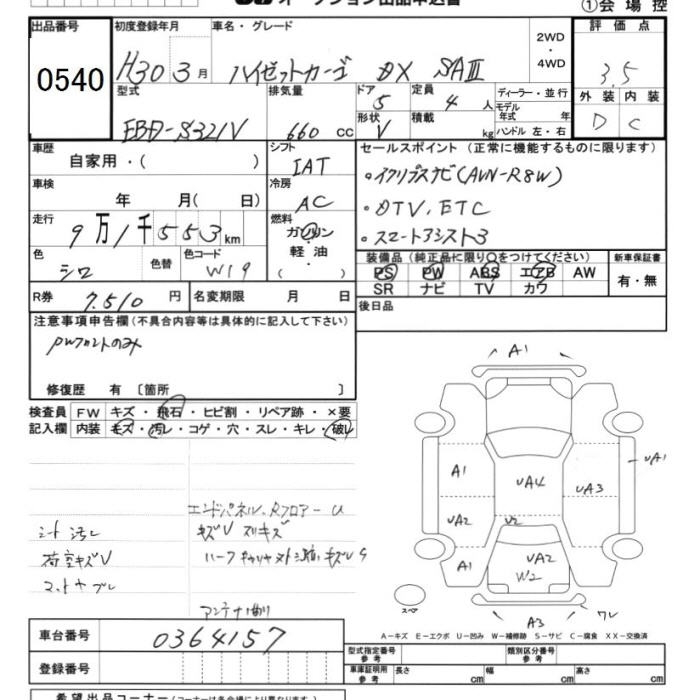 オークション出品申込書
①会場控
出品番号 初度登録年月 車名・グレード 2WD・4WD 評価点
0540 H30 3月 ハイゼットカーゴ DX SAⅢ 3.5
型式 排気量 ドア 定員 ディーラー・並行 外装 内装
EBD-S321V 660 CC 5 4 人 モデル年式 年式 D C
形状 V 積載 kg ハンドル 左・右
車歴 自家用・( ) シフト IAT セールスポイント(正常に機能するものに限ります)
車検 年 月( 日) 冷房 AC ・イクリプスナビ(AVN-R8W)
走行 9万1千553km 燃料 ガソリン・軽油・( ) ・DTV、ETC
・スマートアシスト3
色 シロ 色替 色コード W19 装備品(純正品に限り○をつけてください) 新車保証書
PS PW ABS エアB AW 有・無
SR ナビ TV カワ
R券 7,510円 名変期限 月 日 後日品
注意事項申告欄(不具合内容等は具体的に記入して下さい)
PWフロントのみ
修復歴 有 〔箇所 〕
検査員記入欄 FW キズ・飛石・ヒビ割・リペア跡・×要
内装 キズ・汚レ・コゲ・穴・スレ・キレ・破レ
A1
A1 UA4 UA3 UA1
UA2 U2
A1 UA2
W2
スペア
A3 ワレ
エンドパネル、Rフロアー U
シート汚レ キズV スリキズ
荷室キズV
マットヤブレ
アンテナ曲り
A-キズ E-エクボ U-凹み W-補修跡 S-サビ C-腐食 XX-交換済
車台番号 0364157 型式指定番号 参考 類別区分番号 参考
登録番号 車庫証明用 参考 長さ cm 幅 cm 高さ cm
希望出品コーナー